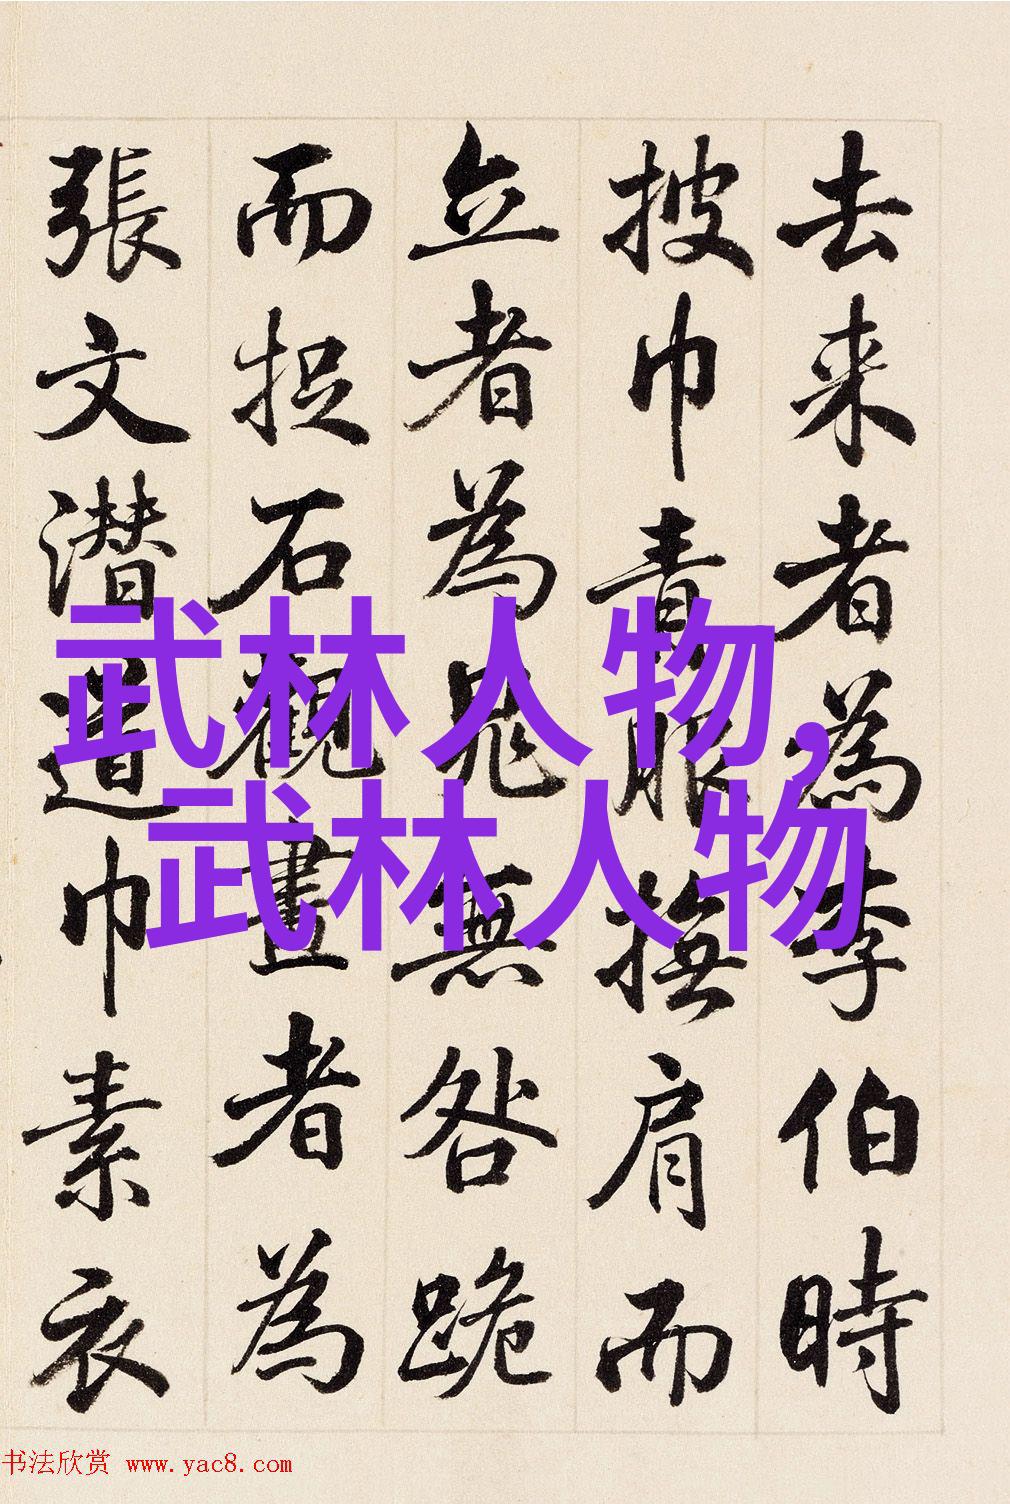 去来者為李伯時
披巾青服撫肩而
立者為晁無咎跪
而捉石觀畫者為
張文潜道巾素衣
武林人物,
武林人物
书法欣赏 www.yac8.com